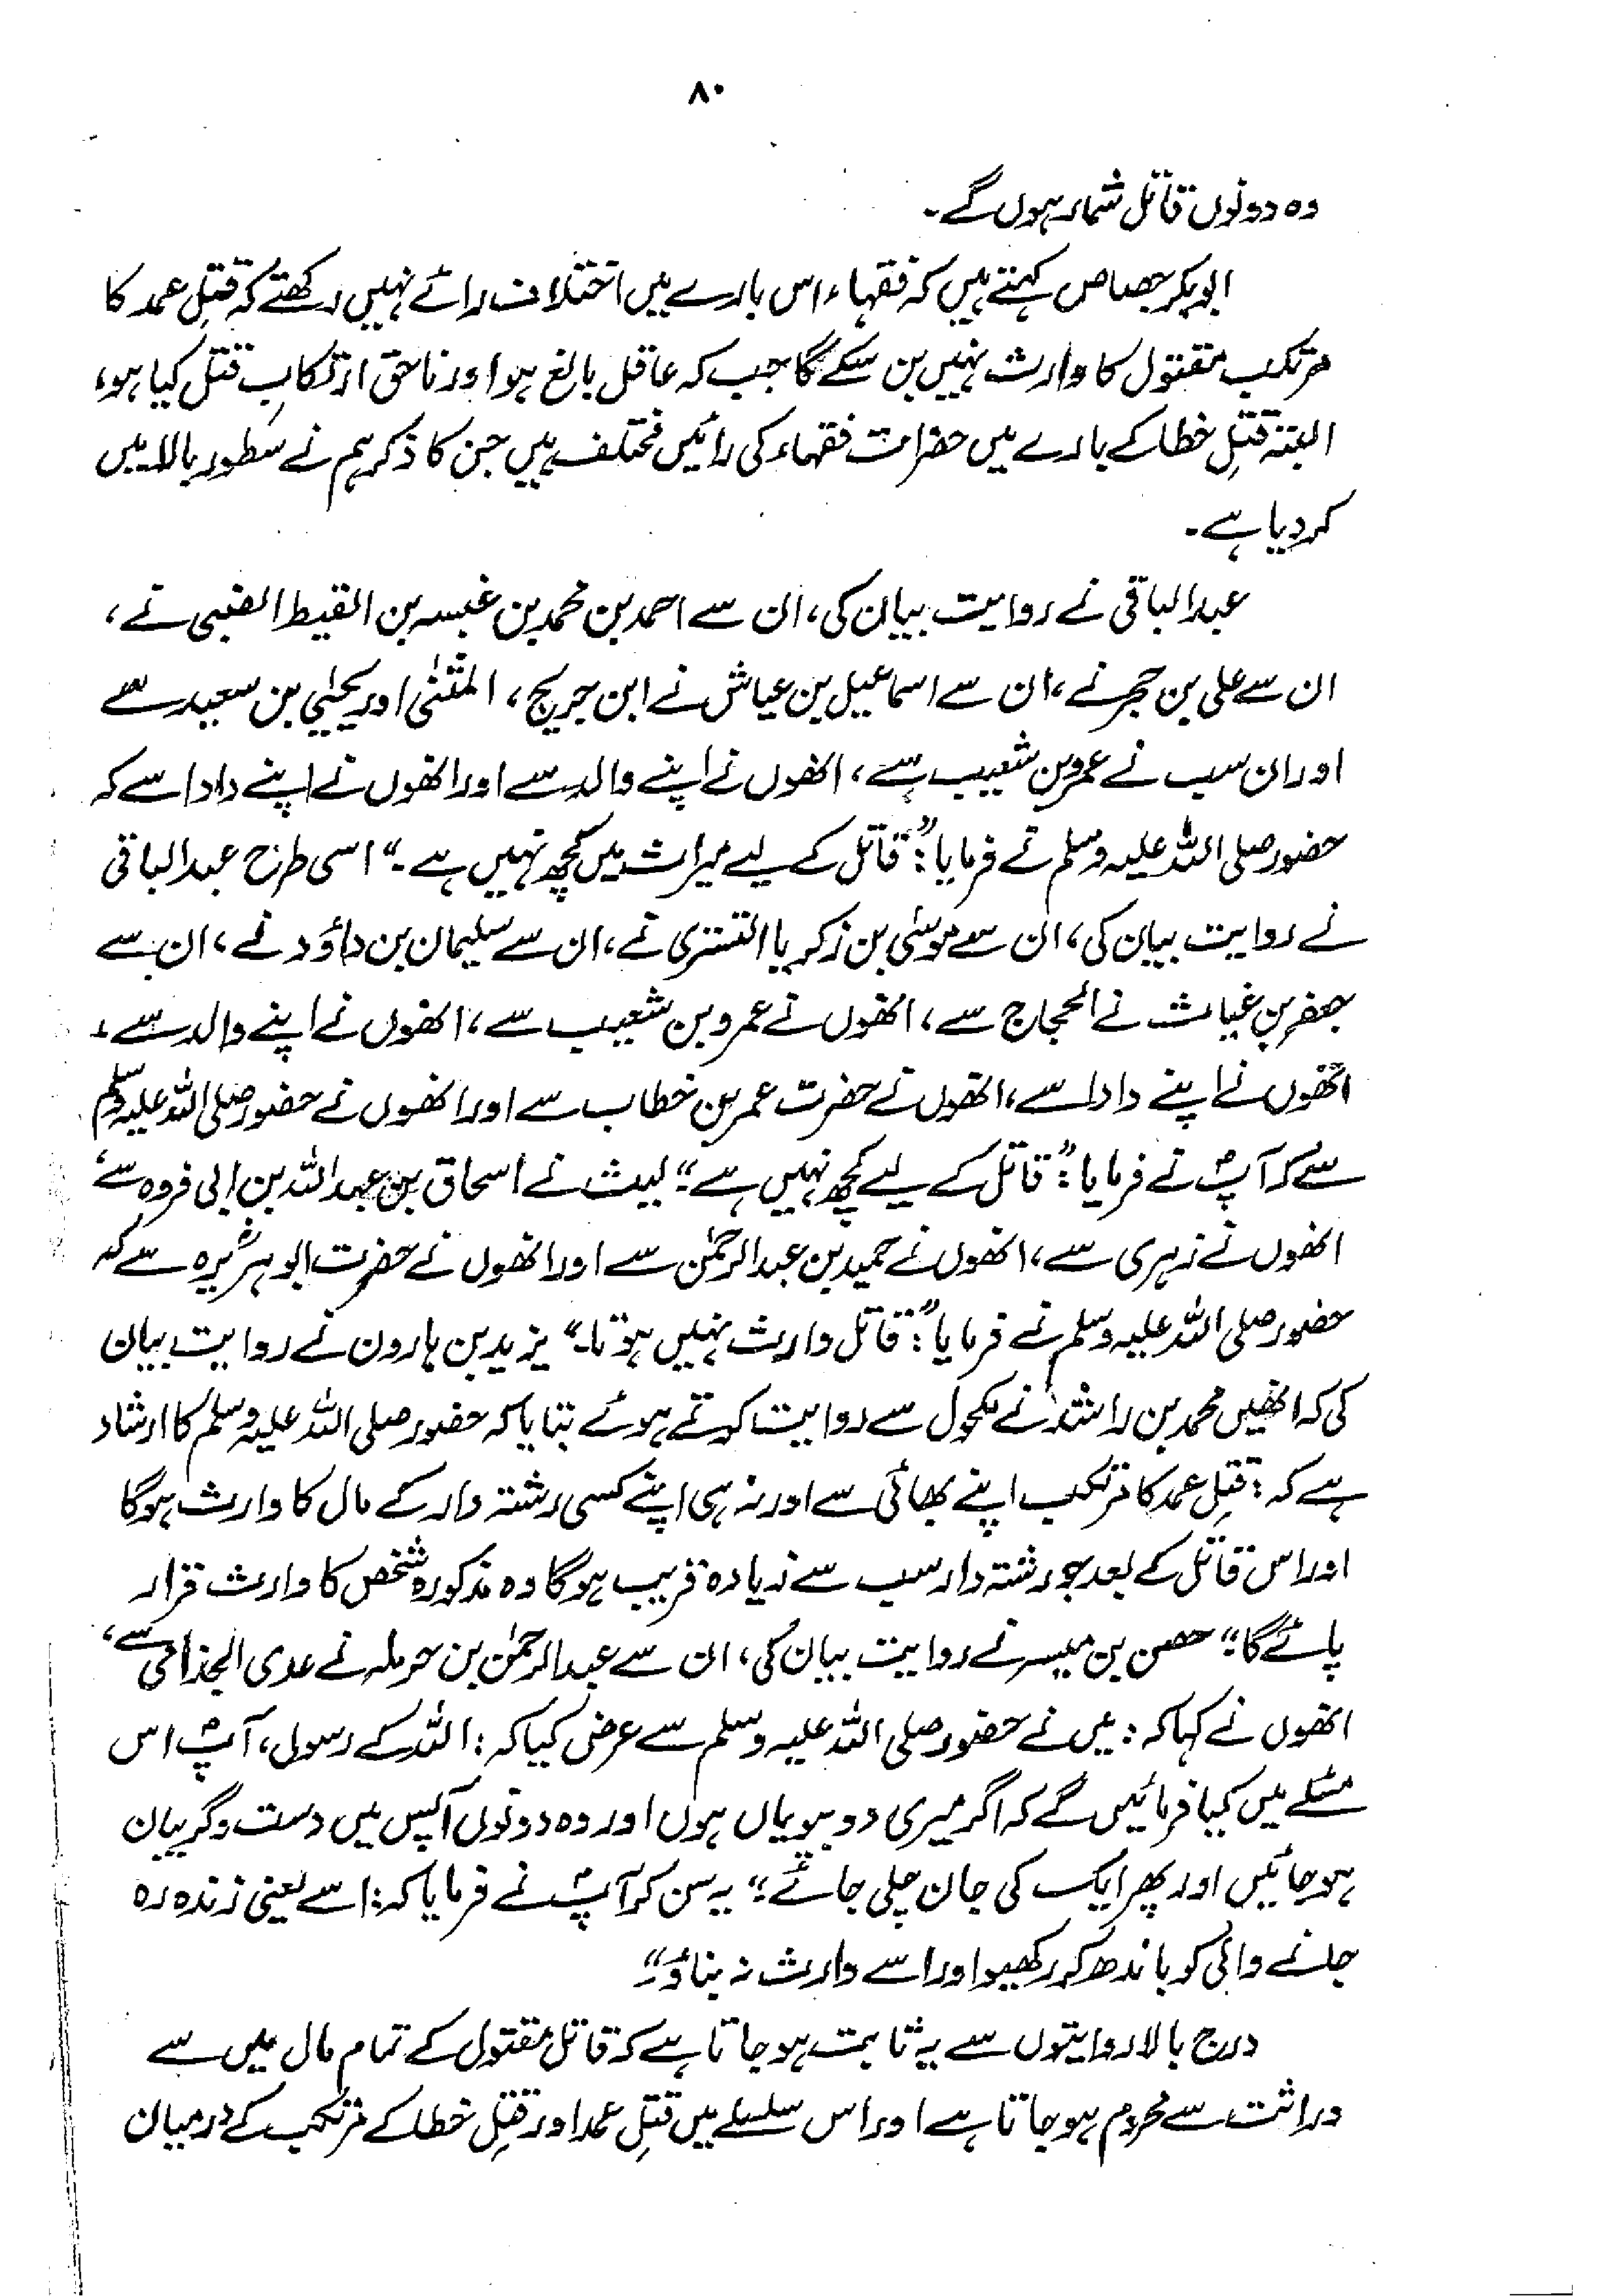 ۸۰
وہ دونوں قاتل شمار ہوں گے۔
ابوبکر جصاص کہتے ہیں کہ فقہاء اس بارے میں اختلاف رائے نہیں رکھتے کہ قتلِ عمد کا
مرتکب مقتول کا وارث نہیں بن سکے گا جب کہ عاقل بالغ ہو اور ناحق ارتکابِ قتل کیا ہو،
البتہ قتلِ خطا کے بارے میں حضرات فقہاء کی رائیں مختلف ہیں جن کا ذکر ہم نے سطور بالا میں
کر دیا ہے۔
عبدالباقی نے روایت بیان کی، ان سے احمد بن محمد بن عنبسہ بن القیط الضبی نے،
ان سے علی بن حجر نے، ان سے اسماعیل بن عیاش نے ابن جریج، المثنیٰ اور یحییٰ بن سعید سے
اور ان سب نے عمرو بن شعیب سے، انھوں نے اپنے والد سے اور انھوں نے اپنے دادا سے کہ
حضور صلی اللہ علیہ وسلم نے فرمایا: "قاتل کے لیے میراث میں کچھ نہیں ہے۔" اسی طرح عبدالباقی
نے روایت بیان کی، ان سے موسیٰ بن زکریا التستری نے، ان سے سلیمان بن داؤد نے، ان سے
جعفر بن غیاث نے الحجاج سے، انھوں نے عمرو بن شعیب سے، انھوں نے اپنے والد سے،
انھوں نے اپنے دادا سے، انھوں نے حضرت عمر بن خطاب سے اور انھوں نے حضور صلی اللہ علیہ وسلم
سے کہ آپؐ نے فرمایا: "قاتل کے لیے کچھ نہیں ہے" لیث نے اسحاق بن عبداللہ بن ابی فروہ سے،
انھوں نے زہری سے، انھوں نے حمید بن عبدالرحمٰن سے اور انھوں نے حضرت ابوہریرہؓ سے کہ
حضور صلی اللہ علیہ وسلم نے فرمایا: "قاتل وارث نہیں ہوتا۔" یزید بن ہارون نے روایت بیان
کی کہ انھیں محمد بن راشد نے مکحول سے روایت کرتے ہوئے بتایا کہ حضور صلی اللہ علیہ وسلم کا ارشاد
ہے کہ: قتلِ عمد کا مرتکب اپنے بھائی سے اور نہ ہی اپنے کسی رشتہ دار کے مال کا وارث ہوگا
اور اس قاتل کے بعد جو رشتہ دار سب سے زیادہ قریب ہوگا وہ مذکورہ شخص کا وارث قرار
پائے گا" حصن بن میسر نے روایت بیان کی، ان سے عبدالرحمٰن بن حرملہ نے عدی الجذامی سے،
انھوں نے کہا کہ: میں نے حضور صلی اللہ علیہ وسلم سے عرض کیا کہ: اللہ کے رسول، آپؐ اس
مسئلے میں کیا فرمائیں گے کہ اگر میری دو بیویاں ہوں اور وہ دونوں آپس میں دست و گریبان
ہو جائیں اور پھر ایک کی جان چلی جائے" یہ سن کر آپؐ نے فرمایا کہ: اسے یعنی زندہ رہ
جانے والی کو باندھ کر رکھیو اور اسے وارث نہ بناؤ۔"
درج بالا روایتوں سے یہ ثابت ہو جاتا ہے کہ قاتل مقتول کے تمام مال میں سے
وراثت سے محروم ہو جاتا ہے اور اس سلسلے میں قتلِ عمد اور قتلِ خطا کے مرتکب کے درمیان